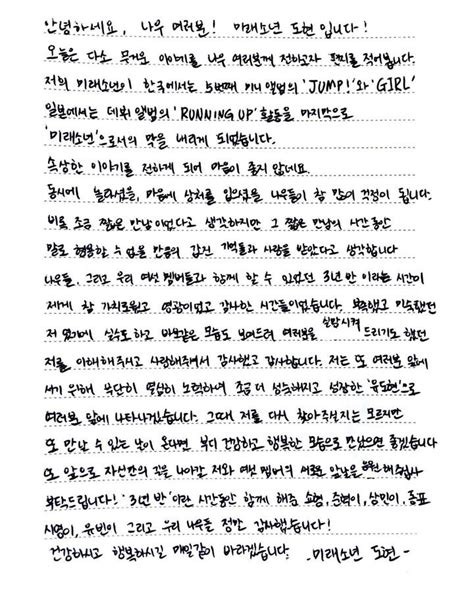 안녕하세요, 나우 여러분! 미래소년 도현입니다!
오늘은 다소 무거운 이야기를 나우 여러분께 전하고자 편지를 적어봅니다.
저희 미래소년이 한국에서는 5번째 미니 앨범의 'JUMP!'와 'GIRL'
일본에서는 데뷔 앨범의 'RUNNING UP' 활동을 마지막으로
'미래소년'으로서의 막을 내리게 되었습니다.
속상한 이야기를 전하게 되어 마음이 좋지 않네요.
동시에 놀라셨을, 마음에 상처를 입으셨을 나우들이 참 많이 걱정이 됩니다.
비록 조금 짧은 만남이었다고 생각하지만 그 짧은 만남의 시간동안
말로 형용할 수 없을 만큼의 값진 기억들과 사랑을 받았다고 생각합니다
나우들, 그리고 우리 여섯 멤버들과 함께 할 수 있었던 3년 반 이라는 시간이
제게 참 가치로웠고 영광이었고 감사한 시간들이었습니다. 부족했고 미숙했던
저 였기에 실수도 하고 바보같은 모습도 보여드려 여러분을 실망시켜 드리기도 했던
저를 이해해주시고 사랑해주셔서 감사했고 감사합니다. 저는 또 여러분 앞에
서기 위해 부단히 열심히 노력하여 조금 더 성숙해지고 성장한 '유도현'으로
여러분 앞에 나타나겠습니다. 그때 저를 다시 찾아주실지는 모르지만
또 만날 수 있는 날이 온다면 부디 건강하고 행복한 모습으로 만났으면 좋겠습니다
또 앞으로 자신만의 길을 나아갈 저와 여섯 멤버의 새로운 앞날을 응원 해주십사
부탁드립니다! '3년 반'이란 시간동안 함께 해준 손형, 준혁이, 상민이, 동표
시영이, 유빈이 그리고 우리 나우들 정말 감사했습니다!
건강하시고 행복하시길 매일같이 바라겠습니다. -미래소년 도현-